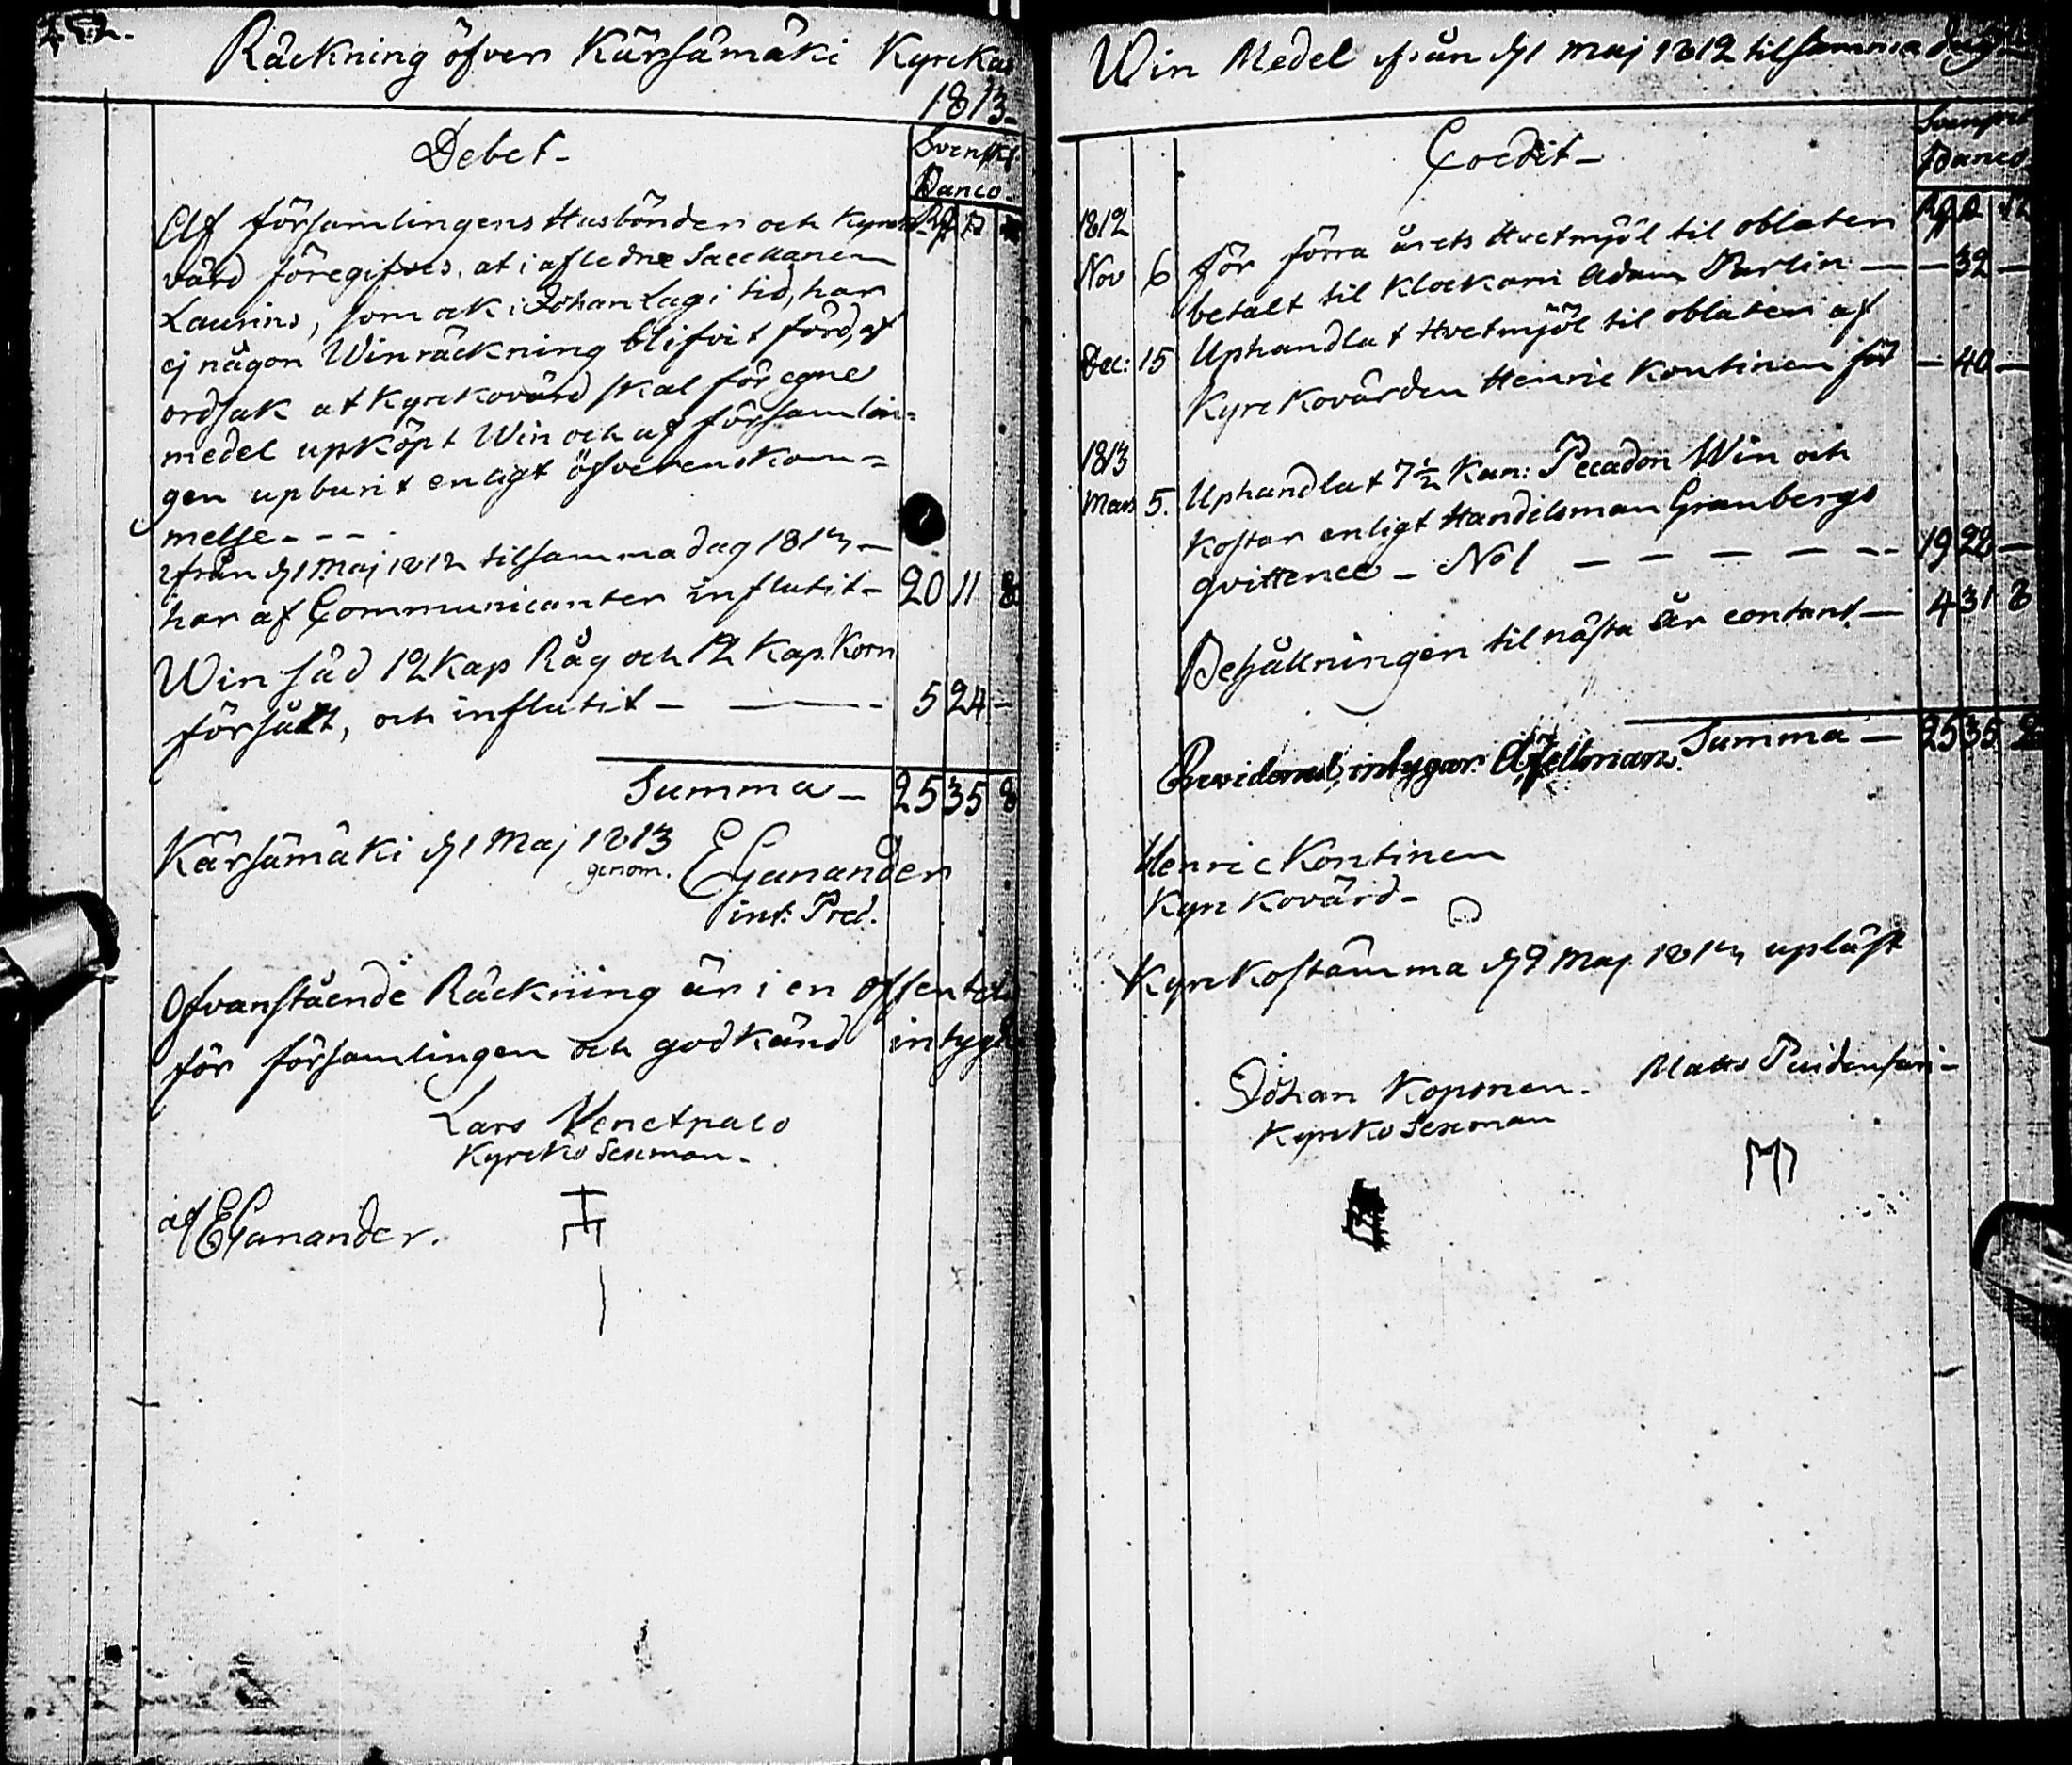 Räckning öfver Kärsämäki Kyrckas
1813
Debet
Svenskt
Banco
Af församlingens Husbönder och Kyrcko
värd föregifves, at i afledne Sacellanen
Laurins, som ock i Johan Lagi tid, har
ej någon Winräckning blifvit förd, af
ordsak at Kyrckovärd skal för egne
medel upköpt Win och af församlin=
gen upburit enligt öfverenskom=
melse - - -
ifrån d. 1 Maj 1812 til samma dag 1813 -
har af Communicanter influtit - 20 11 8
Win säd 12 Kap Råg och 12 Kap. Korn
försålt, och influtit - 5 24 -
Summa - 25 35 8
Kärsämäki d. 1 Maj 1813
genom. E Ganander
int: Pred.
Ofvanstående Räckning är i en offentelig
för församlingen och godkänd intygas
Lars Venetpalo
Kyrcko Sexman -
af E Ganander.
Win Medel ifrån d. 1 Maj 1812 til samma dag
Credit -
Svenskt
Banco
1812
Nov 6 för förra årets Hvetmjöl til oblater
betalt til Klockarn Adam Parlin - - 32 -
Dec: 15 Uphandlat Hvetmjöl til oblater af
Kyrckovärden Henric Kontinen för - 40 -
1813
Mars 5. Uphandlat 7 ½ Kan: Peccadon Win och
kostar enligt Handelsman Granbergs
qvittence - No 1 - - - - - 19 28 -
Behållningen til nästa år contant - 4 31 8
Summa - 25 35 8
intygar
Henric Kontinen
Kyrckovärd -
Kyrckostämma d. 9 Maj 1813 upläst
Johan Koponen. Matts
Kyrcko Sexman